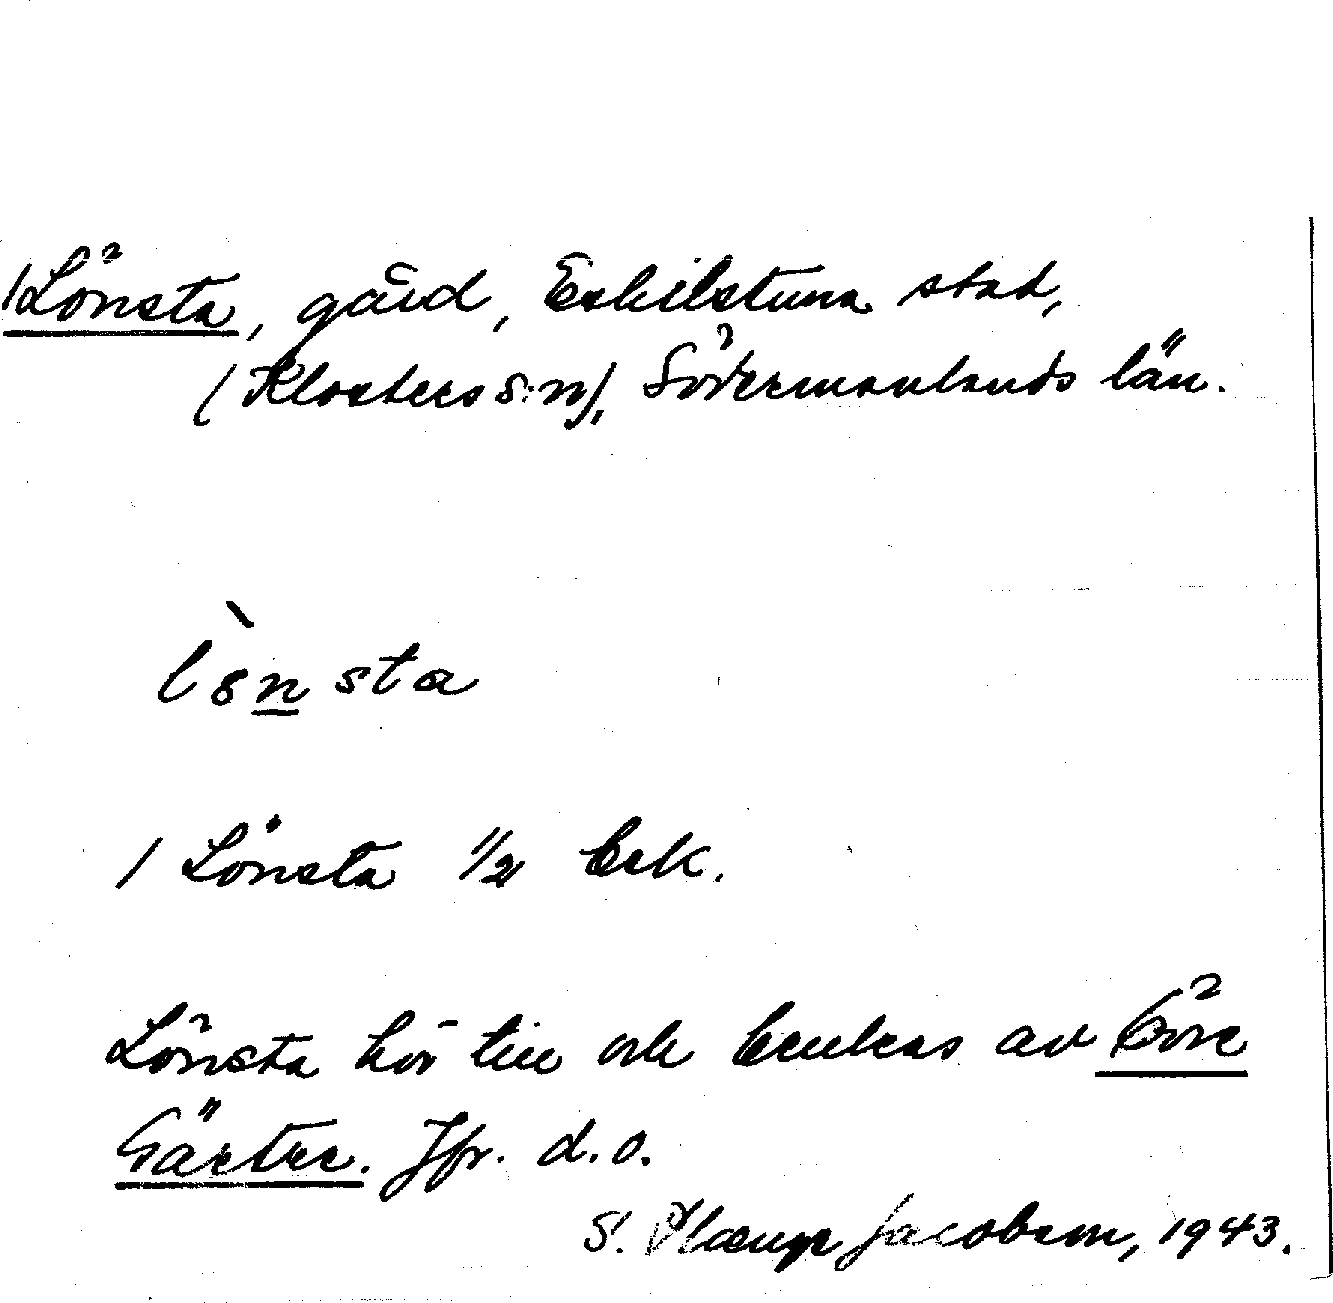 1 Lönsta, gård, Eskilstuna stad,
(Klosters s:n), Södermanlands län.
lònsta
1 Lönsta 1/2 Esk.
Lönsta hör till och brukas av Göre
Gärtre. Jfr. d. o.
S. Plaenge Jacobson, 1943.